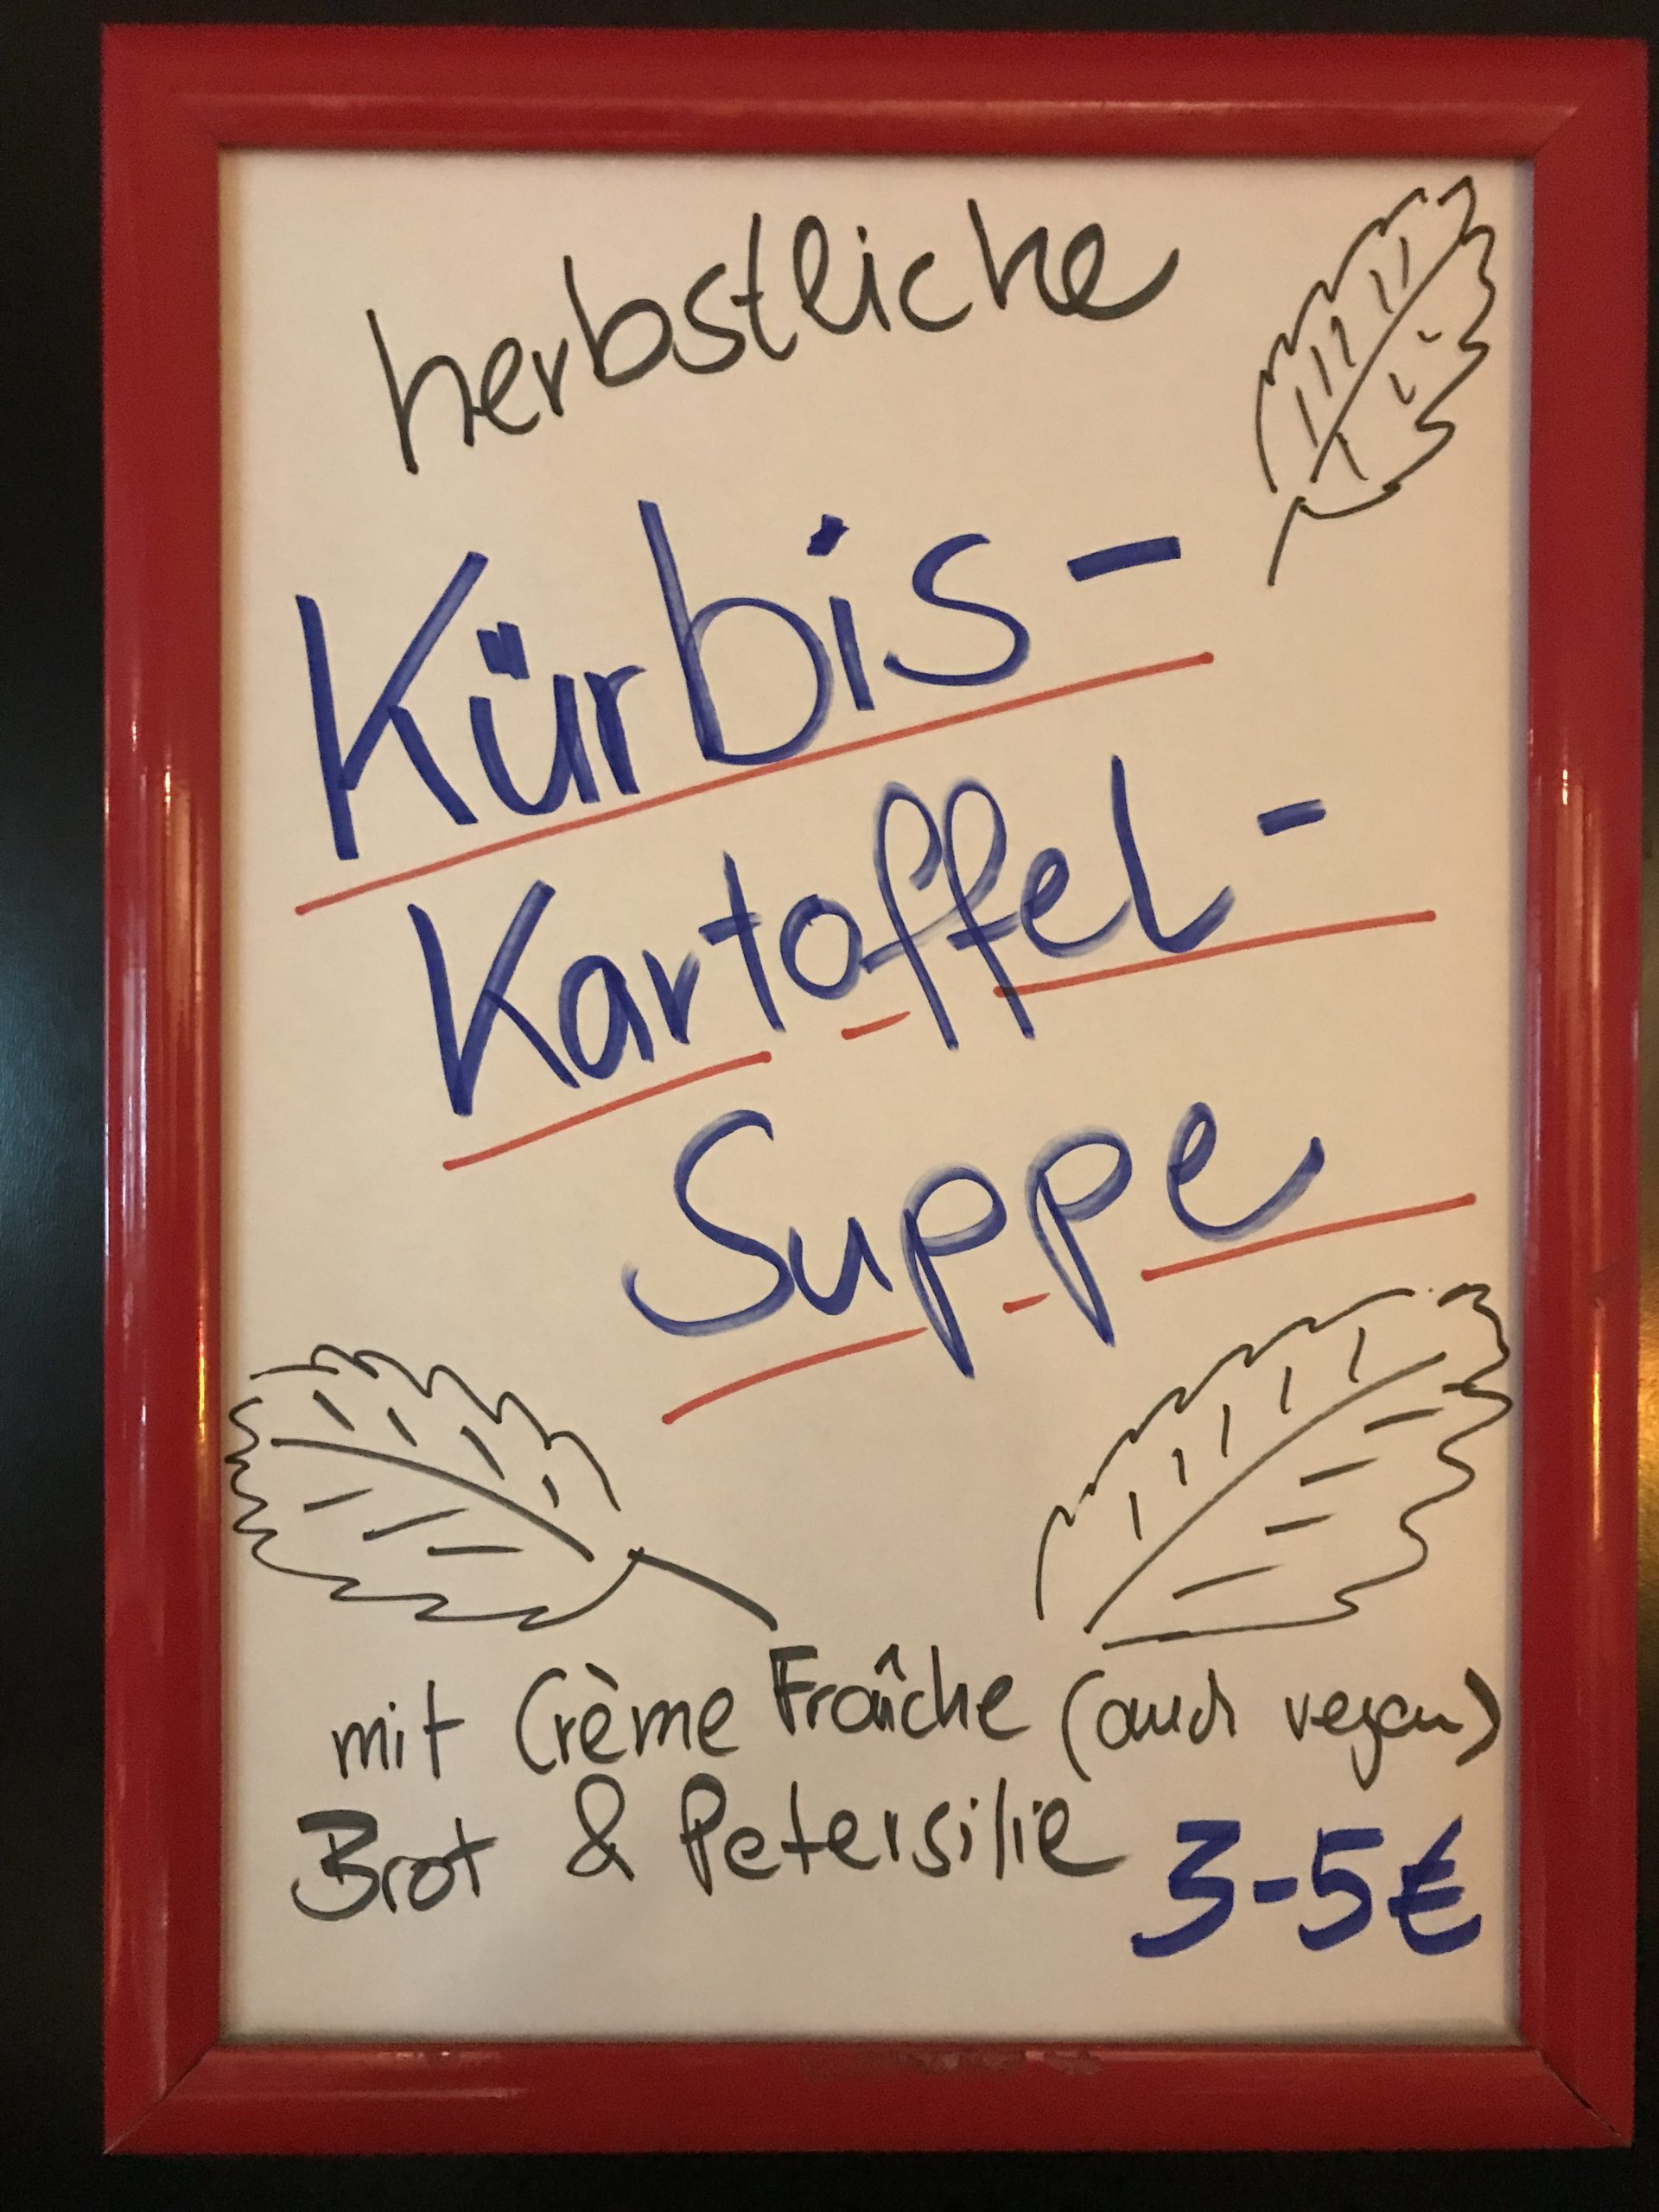 herbstliche
Kürbis-
Kartoffel-
Suppe
mit Crème Fraîche (auch vegan)
Brot & Petersilie 3-5€